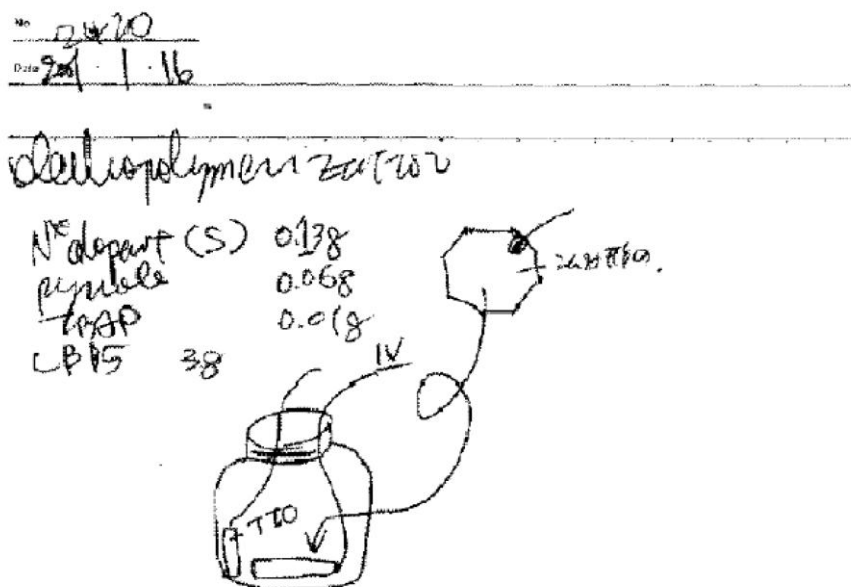 No
Date 1 · 16
electropolymerization
N* dopant (S) 0.13g
pyrrole 0.06g
TBAP 0.01g
CB15 3g
1V
ITO